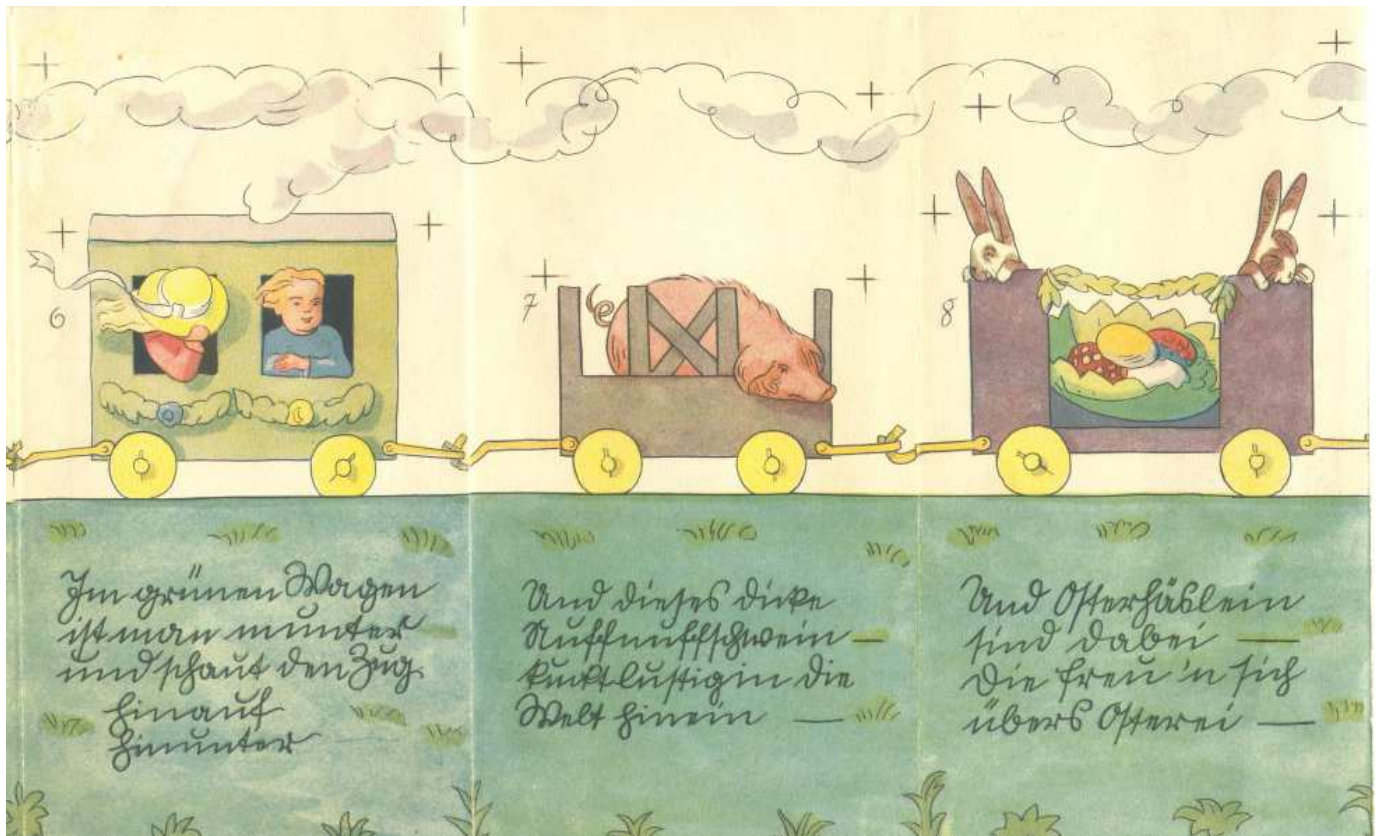 6
Im grünen Wagen
ist man munter
und schaut den Zug
hinauf
hinunter
7
Und dieses dicke
Nuffnuffschwein —
kuckt lustig in die
Welt hinein —
8
Und Osterhäslein
sind dabei —
die freu'n sich
übers Osterei —